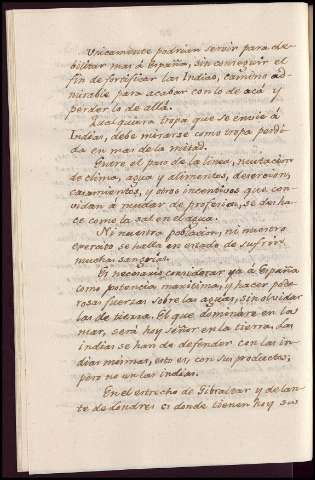 Unicamente podrian servir para de-
bilitar mas à España, sin conseguir el
fin de fortificar las Indias, camino ad-
mirable para acabar con lo de acá y
perder lo de allá.
Qualquiera tropa que se envie à
Indias, debe mirarse como tropa perdi-
da en mas de la mitad.
Entre el paso de la linea, mutacion
de clima, agua y alimentos, desercion,
casamientos, y otros incentivos que con-
vidan à mudar de profesion, se desha-
ce como la sal en el agua.
Ni nuestra poblacion, ni nuestro
exercito se halla en estado de sufrir
muchas sangrias.
Es necesario considerar ya à España
como potencia maritima, y hacer pode-
rosas fuerzas sobre las aguas, sin olvidar
las de tierra. El que dominare en la
mar, será hoy señor en la tierra. Las
Indias se han de defender con las In-
dias mismas, esto es, con sus productos;
pero no en las Indias.
En el estrecho de Gibraltar y delan-
te de Londres es donde tienen hoy sus